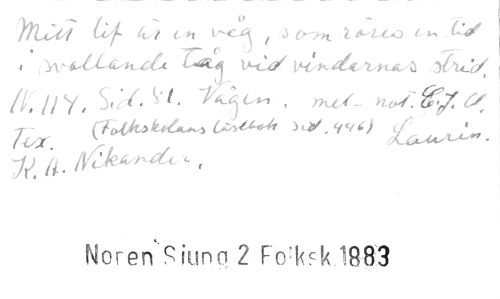 Mitt lif är en våg, som röres en tid
i svallande tåg vid vindarnas strid.
N. 114. Sid. 81. Vågen. met-not. C.J.O.
Laurin.
Tex. (Folkskolans läsebok sid. 496)
K. A. Nikander.
Noren Sjung 2 Folksk 1883